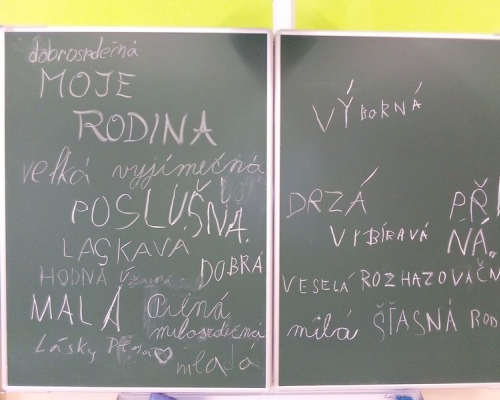 dobrosrdečná
MOJE
RODINA
velká vyjímečná
POSLUŠNÁ.
LASKAVÁ
DOBRÁ
HODNÁ Úžasná
MALÁ Pilná
milosrdečná
Lásky Plná
mladá
VÝBORNÁ
DRZÁ PŘ
VYBÍRAVÁ NÁ..
VESELÁ ROZHAZOVAČN
milá ŠŤASNÁ ROD